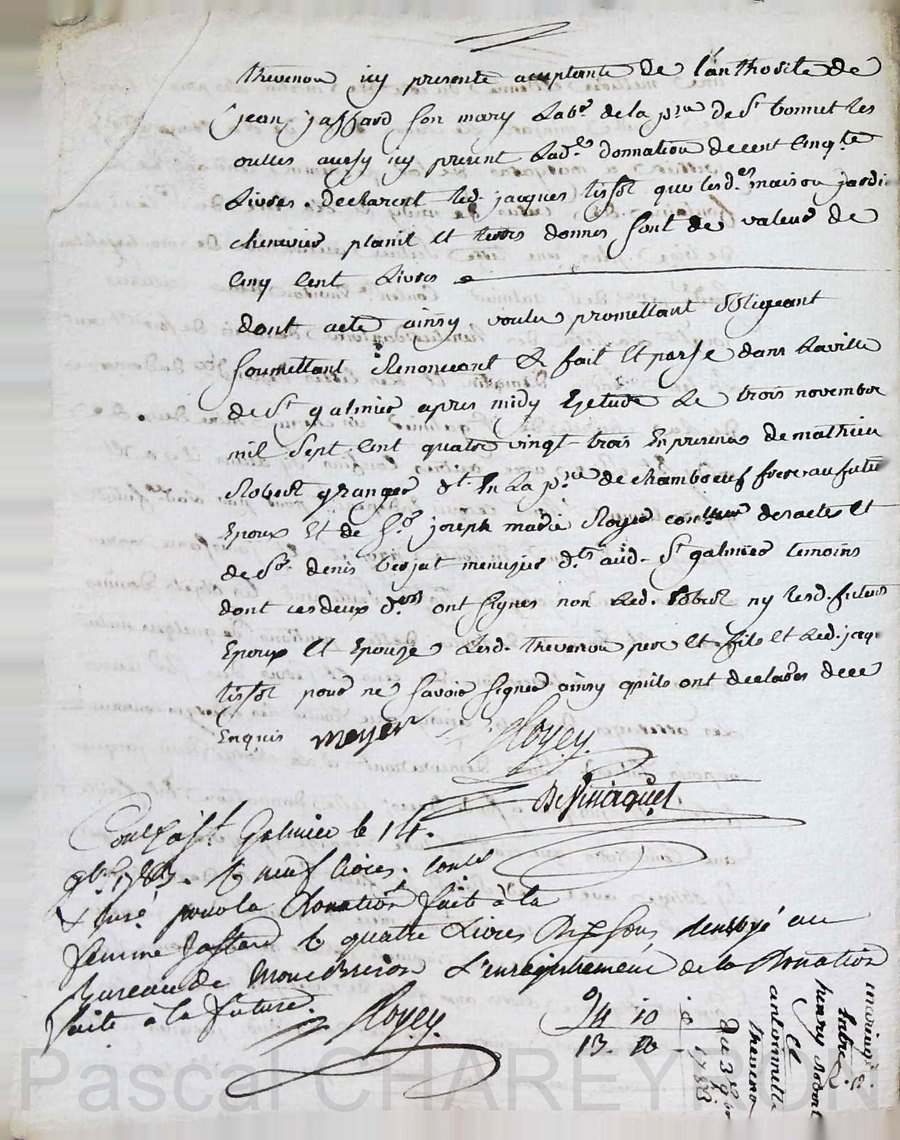 thevenon icy presente acceptante de l'authorité de
jean jassard son mary Lab.r de la p.sse de S.t bonnet les
oulles aussy icy present Lad.e donnation de cent cinq.te
Livres. declarent led. jacques tissot que lesd. maison jardi
chenevier planit et terres donnés sont de valeur de
cinq cent Livres
dont acte ainsy voulu promettant obligeant
soumettant Renonceant & fait et passé dans la ville
de S.t galmier apres midy Etude Le trois novembre
mil sept cent quatre vingt trois En presence de mathieu
Robert granger d.t En La p.sse de chambœuf frere au futur
Epoux Et de S.r joseph marie Royer des actes et
de S.r denis berjat menusier d.ts aud. S.t galmier temoins
dont ces deux d.ers ont signés non Led. Robert ny Lesd. futurs
Epoux Et Epouze Lesd. thevenon pere et fils et Led. jacq.
tissot pour ne savoir signer ainsy qu'ils ont declarés de ce
Enquis meyer Royey.

Con.lé a S.t Galmier le 14.
9.bre 1783. R neuf livres.
pour la Donation faite à la
femme Jassard R quatre Livres dix sous renvoyé au
Bureau de L'enregistrement de la Donation
faite à la future. Royey.
94 10
13. 10
mariage
Entre S.
henry Robert
et
antoinnette
thevenon
du 3 9.bre
1783
Pascal CHAREYRON